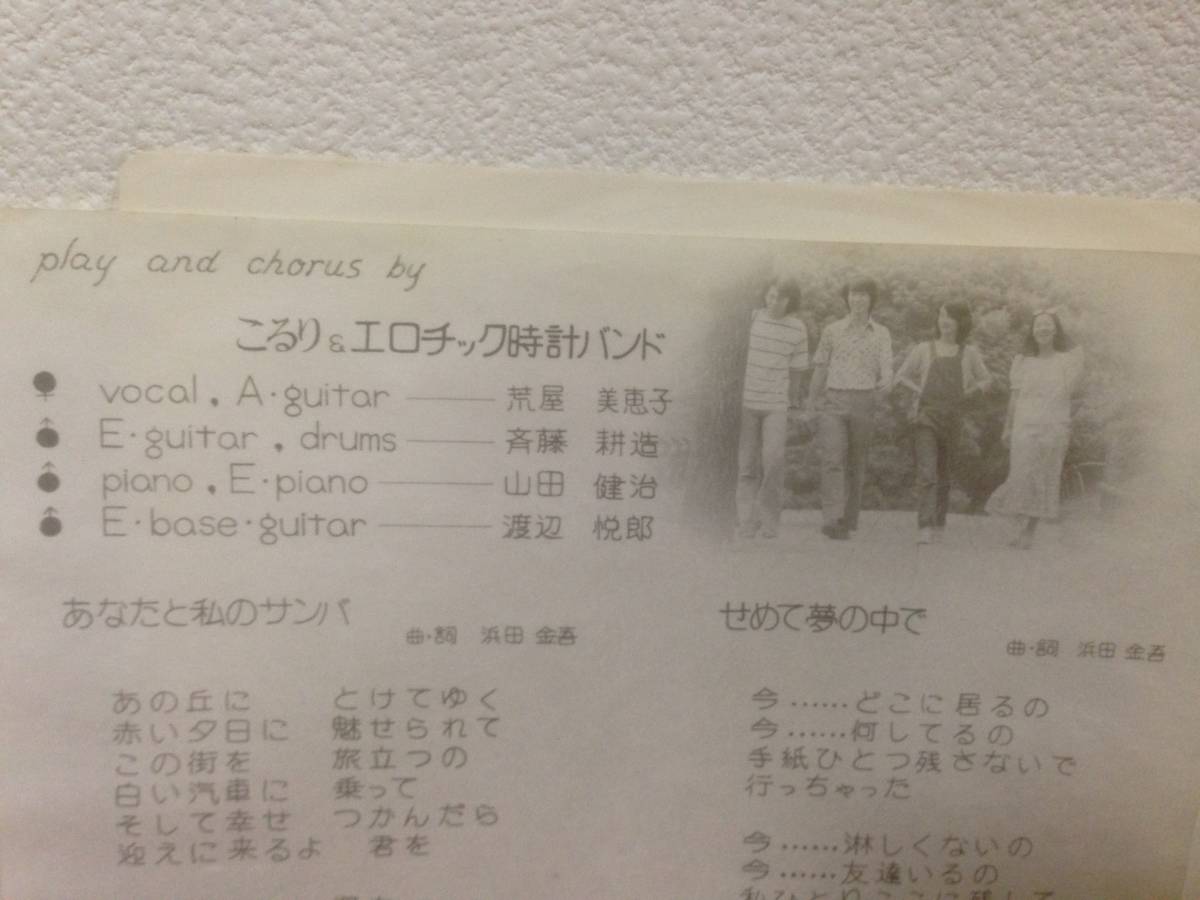 play and chorus by
こるり&エロチック時計バンド
vocal, A・guitar ——— 荒屋 美恵子
E・guitar, drums ——— 斉藤 耕造
piano, E・piano ——— 山田 健治
E・base・guitar ——— 渡辺 悦郎
あなたと私のサンバ
曲・詞 浜田 金吾
あの丘に とけてゆく
赤い夕日に 魅せられて
この街を 旅立つの
白い汽車に 乗って
そして幸せ つかんだら
迎えに来るよ 君を
せめて夢の中で
曲・詞 浜田 金吾
今……どこに居るの
今……何してるの
手紙ひとつ残さないで
行っちゃった
今……淋しくないの
今……友達いるの
私ひとりここに残して